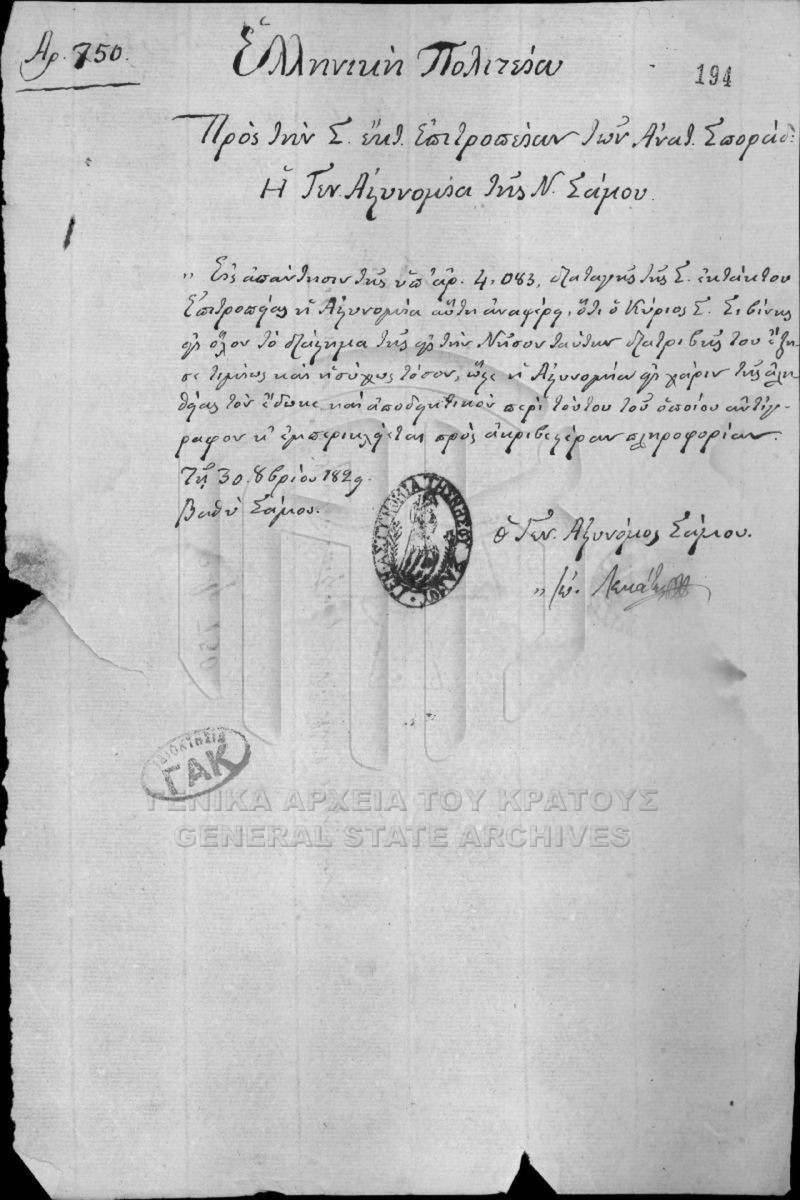 Αρ. 750.
Ἑλληνικὴ Πολιτεία
194
Πρὸς τὴν Σ. ἔκτ. Ἐπιτροπείαν τῶν Ἀνατ. Σποράδ:
Ἡ Γεν. Ἀστυνομία τῆς Ν. Σάμου.
„ Εἰς ἀπάντησιν τῆς ὑπ' ἀρ. 4,083, διαταγῆς τῆς Σ. ἐκτάκτου
Ἐπιτροπείας ἡ Ἀστυνομία αὕτη ἀναφέρει, ὅτι ὁ Κύριος Σ. Σιβίνης
εἰς ὅλον τὸ διάστημα τῆς εἰς τὴν Νῆσον ταύτην διατριβῆς του ἔζη-
σε τιμίως καὶ ἡσύχως τόσον, ὥστε ἡ Ἀστυνομία εἰς χάριν τῆς ἀλη-
θείας τὸν ἔδωκε καὶ ἀποδεικτικὸν περὶ τούτου τοῦ ὁποίου ἀντίγ-
ραφον κ' ἐμπερικλείεται πρὸς ἀκριβεστέραν πληροφορίαν.
Τῇ 30 8βρίου 1829.
Βαθὺ Σάμου.
ΓΕΝ. ΑΣΤΥΝΟΜΙΑ ΤΗΣ ΝΗΣΟΥ ΣΑΜΟΥ
Ὁ Γεν. Ἀστυνόμος Σάμου.
„ Ἰω. Λεκάτης
ΙΔΙΟΚΤΗΣΙΑ
ΓΑΚ
ΓΕΝΙΚΑ ΑΡΧΕΙΑ ΤΟΥ ΚΡΑΤΟΥΣ
GENERAL STATE ARCHIVES